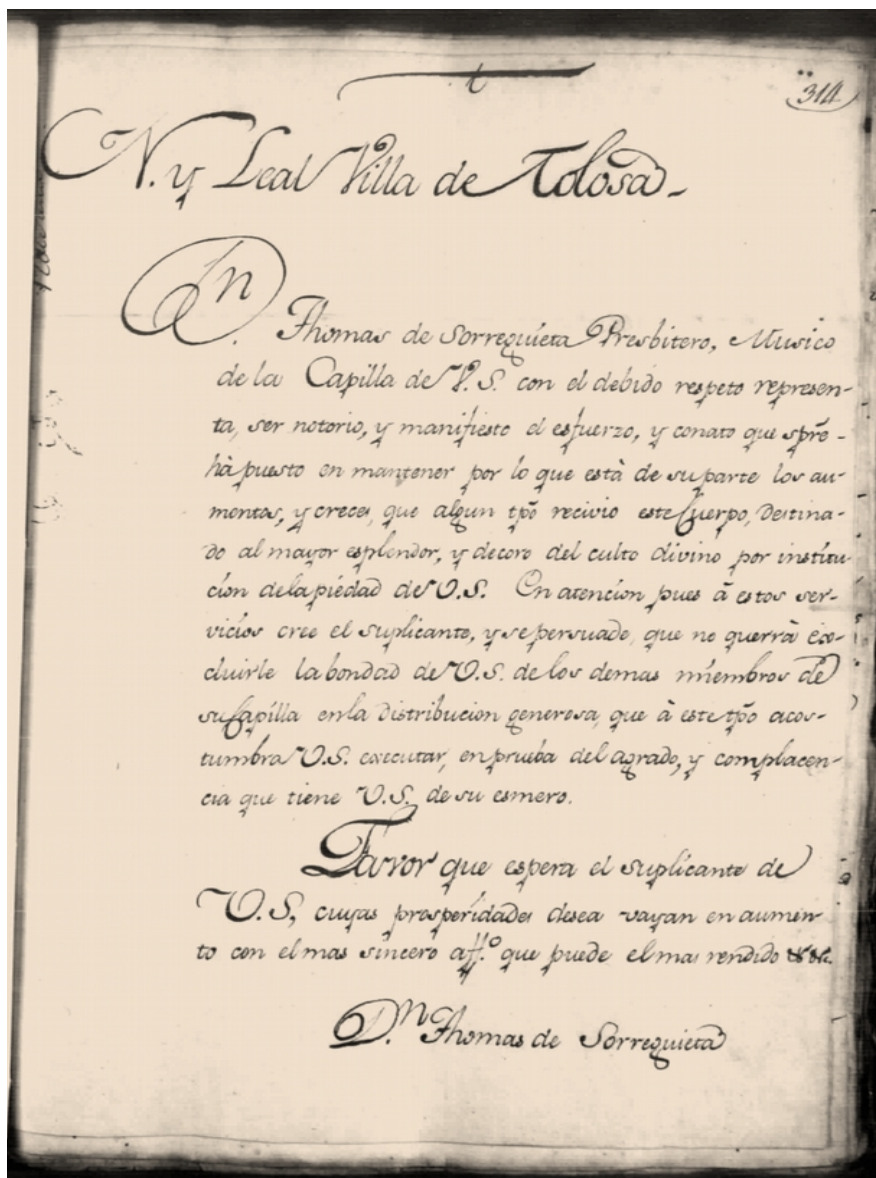 314
N. y Leal Villa de Tolosa-
Dn. Thomas de Sorreguieta Presbitero, Musico
de la Capilla de V.S. con el debido respeto represen-
ta, ser notorio, y manifiesto el esfuerzo, y conato que spre-
hà puesto en mantener por lo que està de su parte los au-
mentos, y creces, que algun tpõ recivio este Cuerpo, destina-
do al mayor esplendor, y decoro del culto divino por institu-
cion de la piedad de V.S. En atencion pues à estos ser-
vicios cree el suplicante, y se persuade, que no querrà ex-
cluirle la bondad de V.S. de los demas miembros de
su Capilla en la distribucion generosa, que à este tpõ acos-
tumbra V.S. executar, en prueba del agrado, y complacen-
cia que tiene V.S. de su esmero.
Favor que espera el suplicante de
V.S, cuyas prosperidades desea vayan en aumen-
to con el mas sincero aff.º que puede el mas rendido
D.n Thomas de Sorreguieta